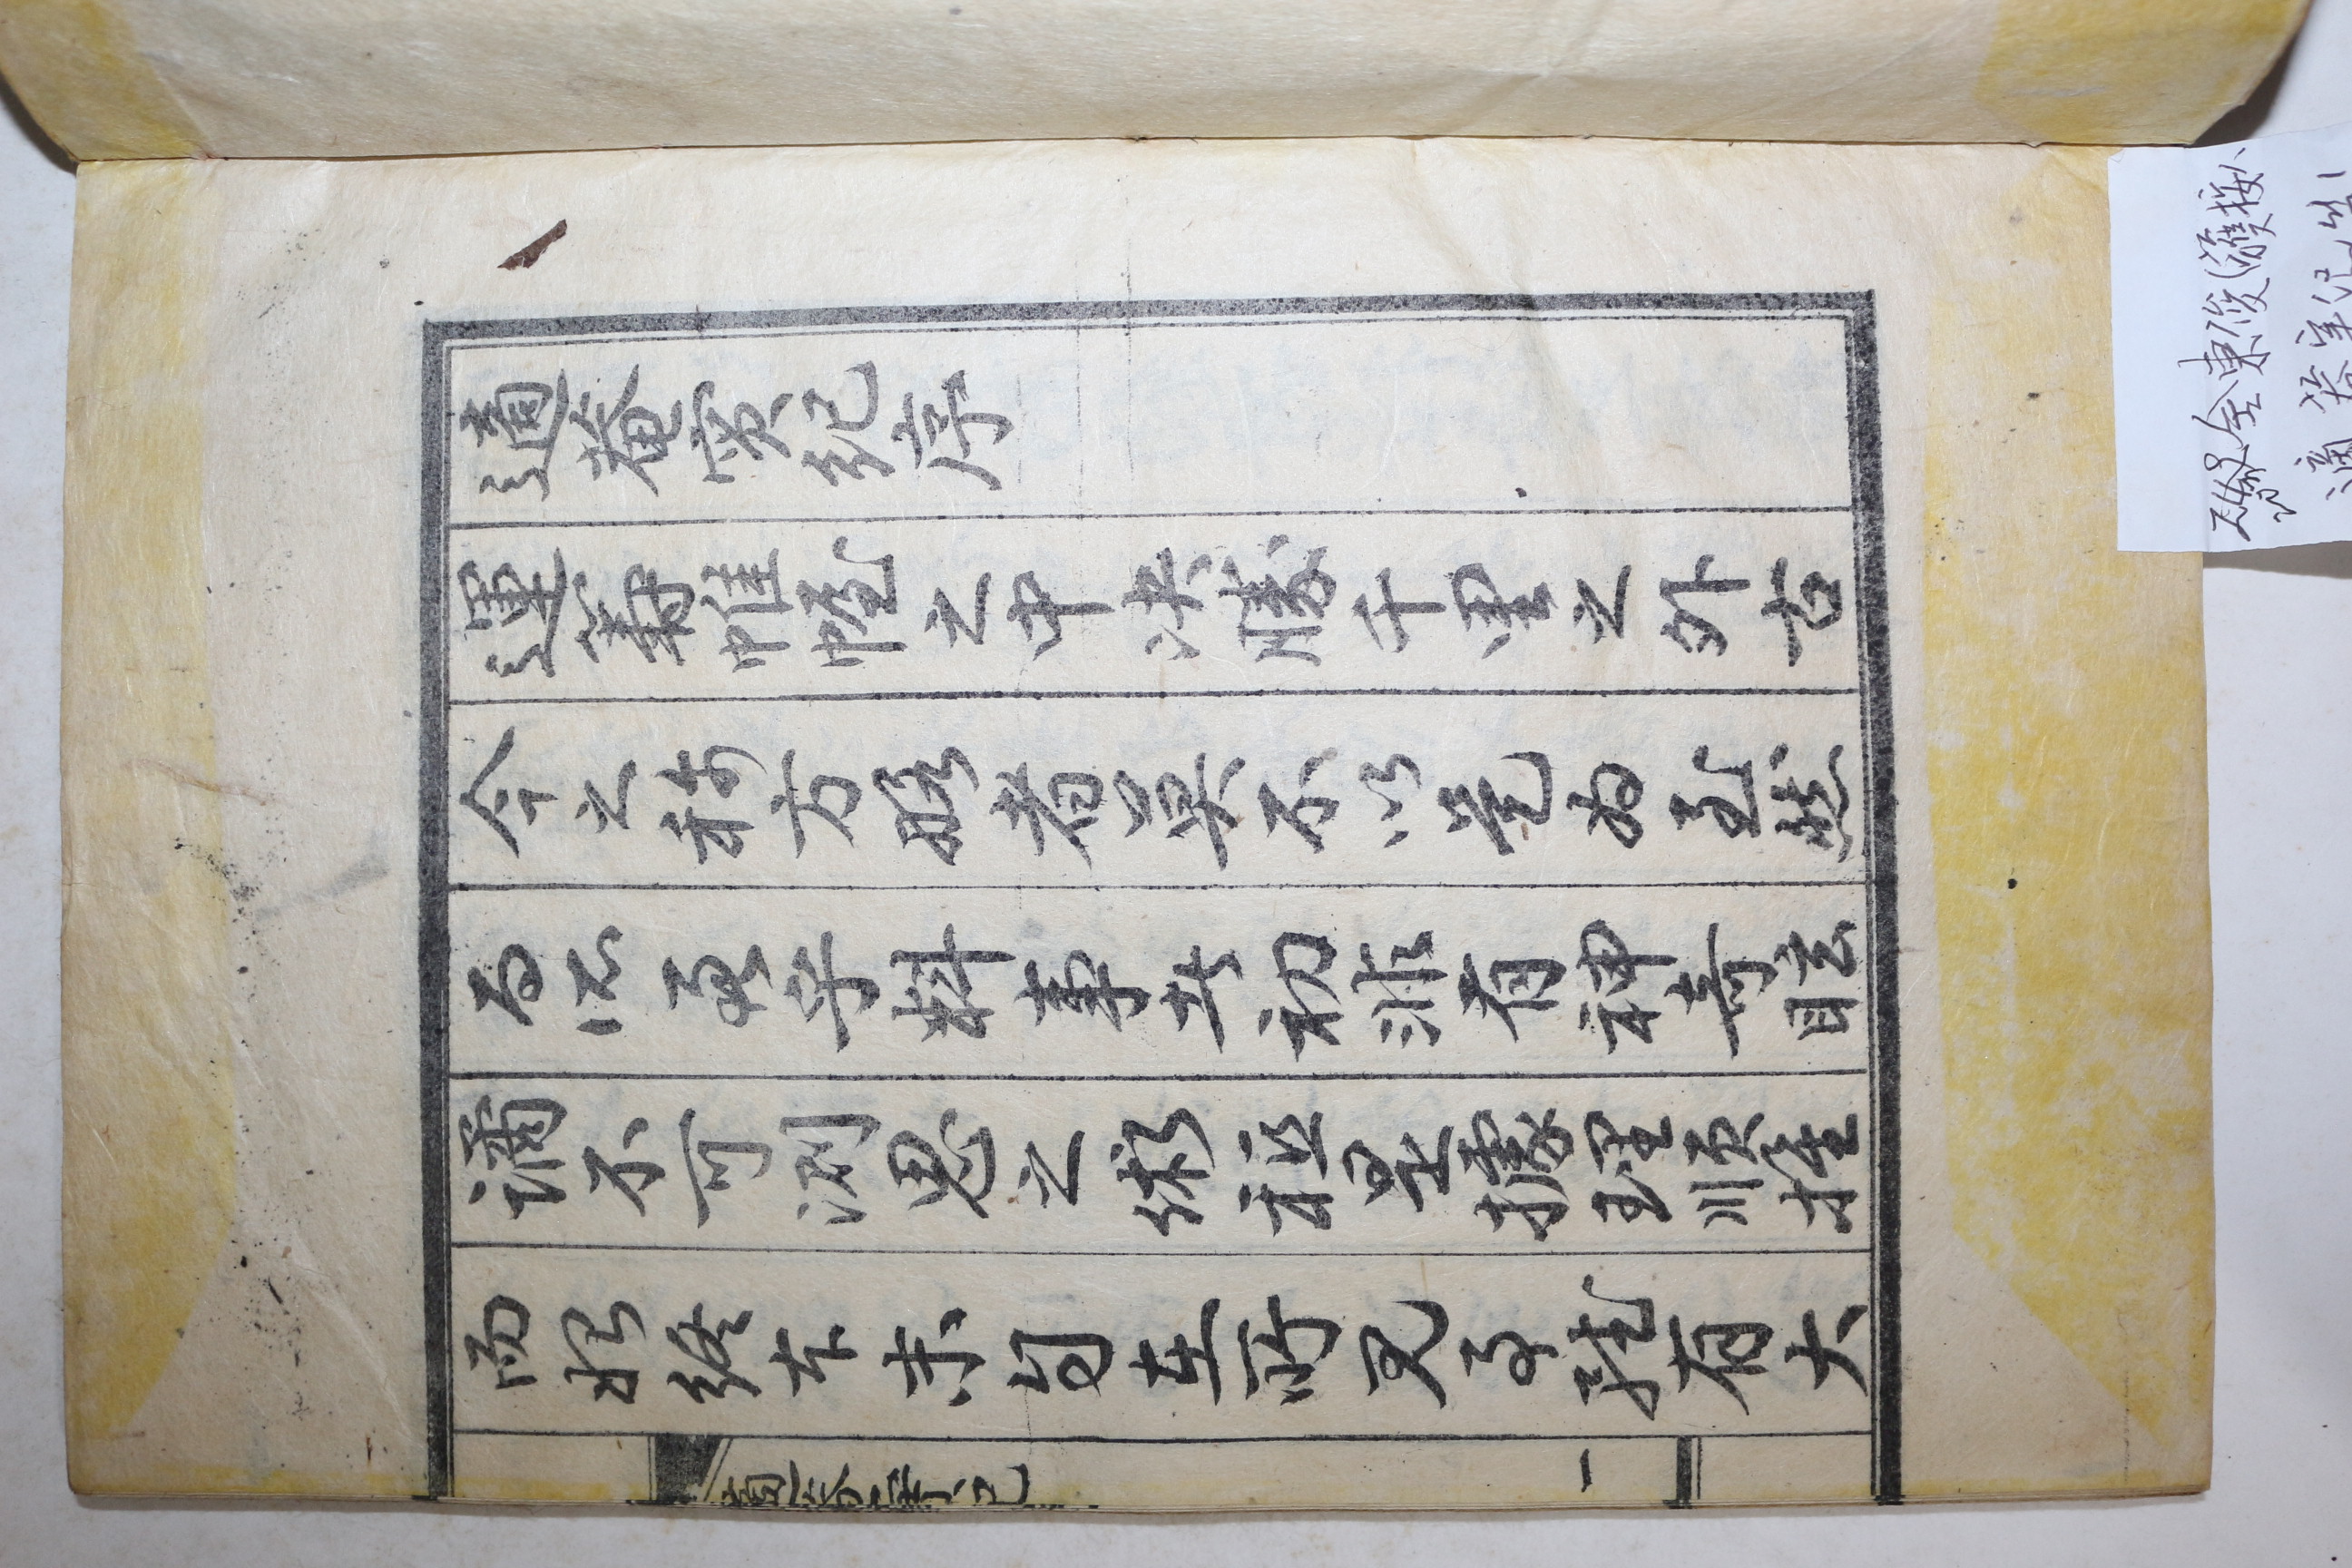 適菴實紀序
運籌帷幄之中決勝千里之外古
今之称方略者莫不以是为至然
而所貴乎料事者初非有神奇眩
譎不可測思之術秪是據理順推
而始終本末自在所見雖有大
適菴實紀
一
金東俊
適菴実纪